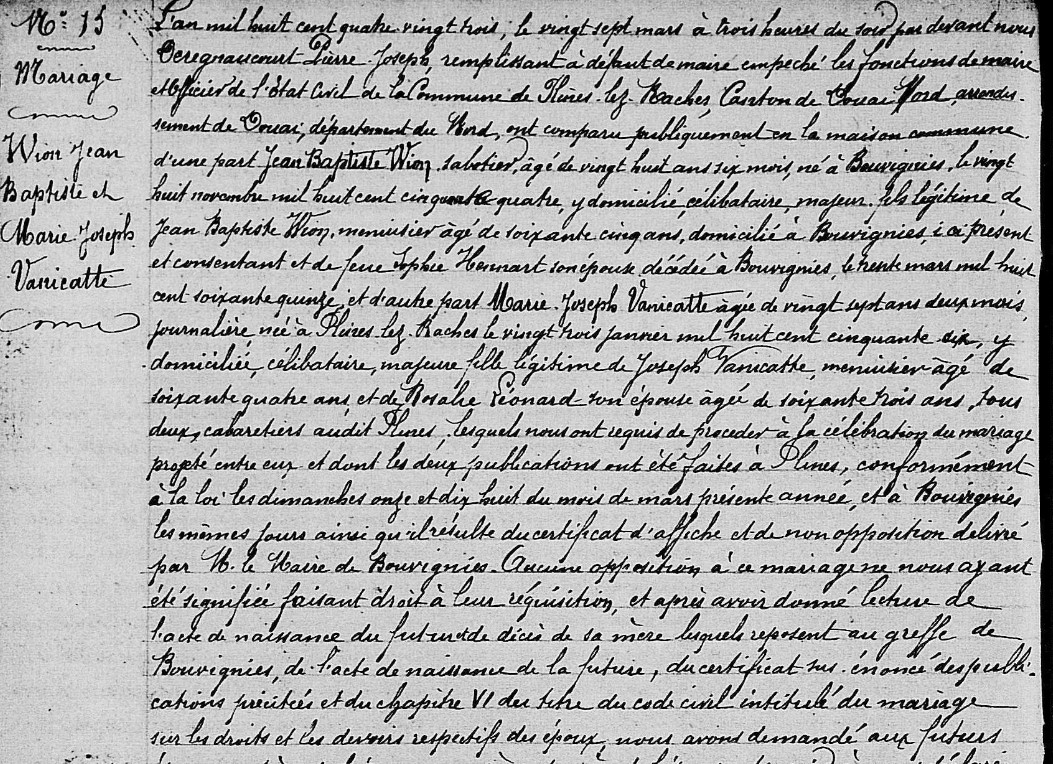 N° 15
Mariage
Wion Jean
Baptiste et
Marie Joseph
Vanicatte
L'an mil huit cent quatre vingt trois, le vingt sept mars à trois heures du soir par devant nous
Deregnaucourt Pierre Joseph, remplissant à défaut de maire empeché les fonctions de maire
et officier de l'Etat Civil de la Commune de Flines-lez-Raches, Canton de Douai Nord, arrondis-
sement de Douai, département du Nord, ont comparu publiquement en la maison commune
d'une part Jean Baptiste Wion, sabotier, âgé de vingt huit ans six mois, né à Bouvignies, le vingt
huit novembre mil huit cent cinquante quatre, y domicilié, célibataire, majeur, fils légitime de
Jean Baptiste Wion, menuisier âgé de soixante cinq ans, domicilié à Bouvignies, ici présent
et consentant et de feue Sophie Hennart son épouse, décédée à Bouvignies, le trente mars mil huit
cent soixante quinze, et d'autre part Marie-Joseph Vanicatte âgée de vingt sept ans deux mois,
journalière, née à Flines-lez-Raches le vingt trois janvier mil huit cent cinquante six, y
domiciliée, célibataire, majeure fille légitime de Joseph Vanicatte, menuisier âgé de
soixante quatre ans, et de Rosalie Léonard son épouse âgée de soixante trois ans, tous
deux, cabaretiers audit Flines, lesquels nous ont requis de procéder à la célébration du mariage
projeté entre eux et dont les deux publications ont été faites à Flines, conformément
à la loi les dimanches onze et dix huit du mois de mars présente année, et à Bouvignies
les mêmes jours ainsi qu'il résulte du certificat d'affiche et de non opposition délivré
par M. le Maire de Bouvignies. Aucune opposition à ce mariage ne nous ayant
été signifiée faisant droit à leur réquisition, et après avoir donné lecture de
l'acte de naissance du futur et de décès de sa mère lesquels reposent au greffe de
Bouvignies, de l'acte de naissance de la future, du certificat sus-énoncé des publi-
cations précitées et du chapitre VI du titre du code civil intitulé du mariage
sur les droits et les devoirs respectifs des époux, nous avons demandé aux futurs